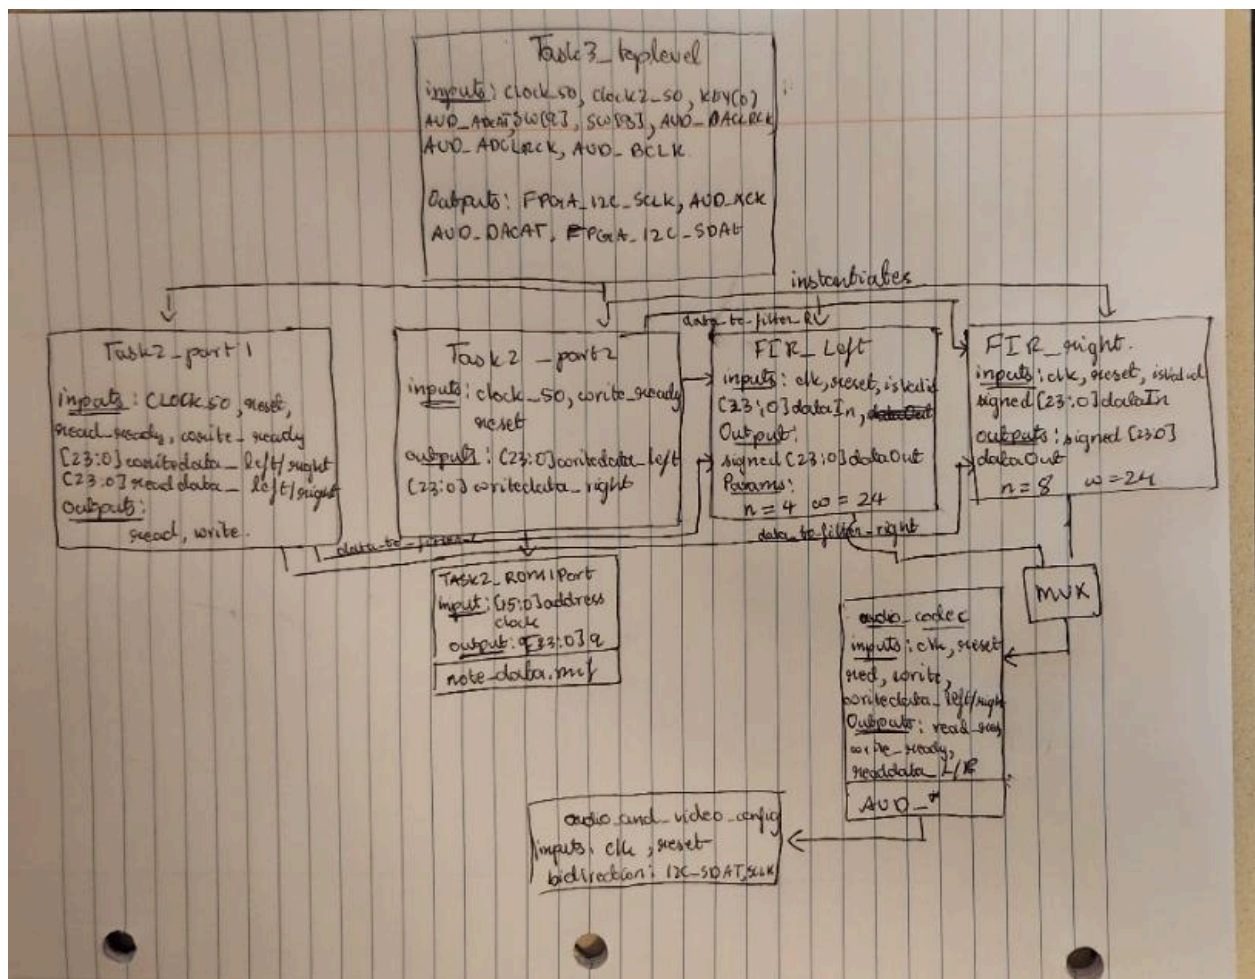 Task3_toplevel
inputs: CLOCK_50, clock2_50, KEY[0]
AUD_ADCDAT, SW[9], SW[8], AUD_DACLRCK,
AUD_ADCLRCK, AUD_BCLK.
Outputs: FPGA_I2C_SCLK, AUD_XCK
AUD_DACAT, FPGA_I2C_SDAT
instantiates
Task2_part1
inputs: CLOCK_50, reset,
read_ready, write_ready
[23:0] writedata_left/right
[23:0] readdata_left/right
outputs:
read, write.
Task2_part2
inputs: clock_50, write_ready
reset
outputs: [23:0] writedata_left
[23:0] writedata_right
data_to_filter_R
FIR_Left
inputs: clk, reset, isValid
[23:0] dataIn, dataOut
Output:
signed [23:0] dataOut
Params:
n = 4 w = 24
FIR_right.
inputs: clk, reset, isValid
signed [23:0] dataIn
outputs: signed [23:0]
dataOut
n = 8 w = 24
data_to_filter
data_to_filter_right
TASK2_ROM1Port
input: [15:0] address
clock
output: [23:0] q
note_data.mif
MUX
audio_codec
inputs: clk, reset
red, write,
writedata_left/right
Outputs: read_
write_ready,
readdata_L/R
AUD_*
audio_and_video_config
inputs: clk, reset
bidirection: I2C_SDAT, SCLK